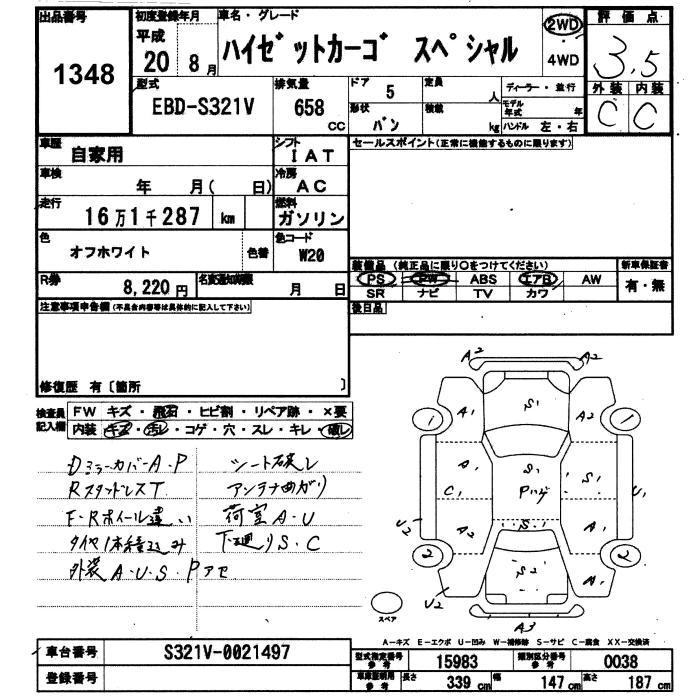 出品番号 初度登録年月 車名・グレード 評価点
1348 平成 20 8月 ハイゼットカーゴ スペシャル 2WD・4WD 3.5
型式 排気量 ドア 定員 ディーラー・並行 外装 内装
EBD-S321V 658 CC 5 人 モデル年式 年 C C
形状 バン 積載 kg ハンドル 左・右
車歴 自家用 シフト IAT セールスポイント(正常に機能するものに限ります)
車検 年 月( 日) 冷房 AC
走行 16万1千287 km 燃料 ガソリン
色 オフホワイト 色替 色コード W20
装備品(純正品に限り○をつけてください) 新車保証書
R券 8,220円 名変通知期限 月 日 PS PW ABS エアB AW 有・無
SR ナビ TV カワ
注意事項申告欄(不具合内容等は具体的に記入して下さい) 後日品
修復歴 有〔箇所 〕
検査員記入欄 FW キズ・飛石・ヒビ割・リペア跡・×要
内装 キズ・汚レ・コゲ・穴・スレ・キレ・破レ
DミラーカバーA.P シート破レ
RスタットレスT アンテナ曲ガリ
F・Rホイール違い 荷室A・U
タイヤ1本積込み 下廻りS・C
外装A・U・S・Pアセ
A2 A2
A1 S1 A2 1 1
A1 S1 S1
C1 Pハゲ U1
U2 A2 S1 A1
2 S2 2
U2 A1
A3
スペア
A-キズ E-エクボ U-凹み W-補修跡 S-サビ C-腐食 XX-交換済
車台番号 S321V-0021497 型式指定番号 参考 15983 類別区分番号 参考 0038
登録番号 車庫証明用 参考 長さ 339 cm 幅 147 cm 高さ 187 cm